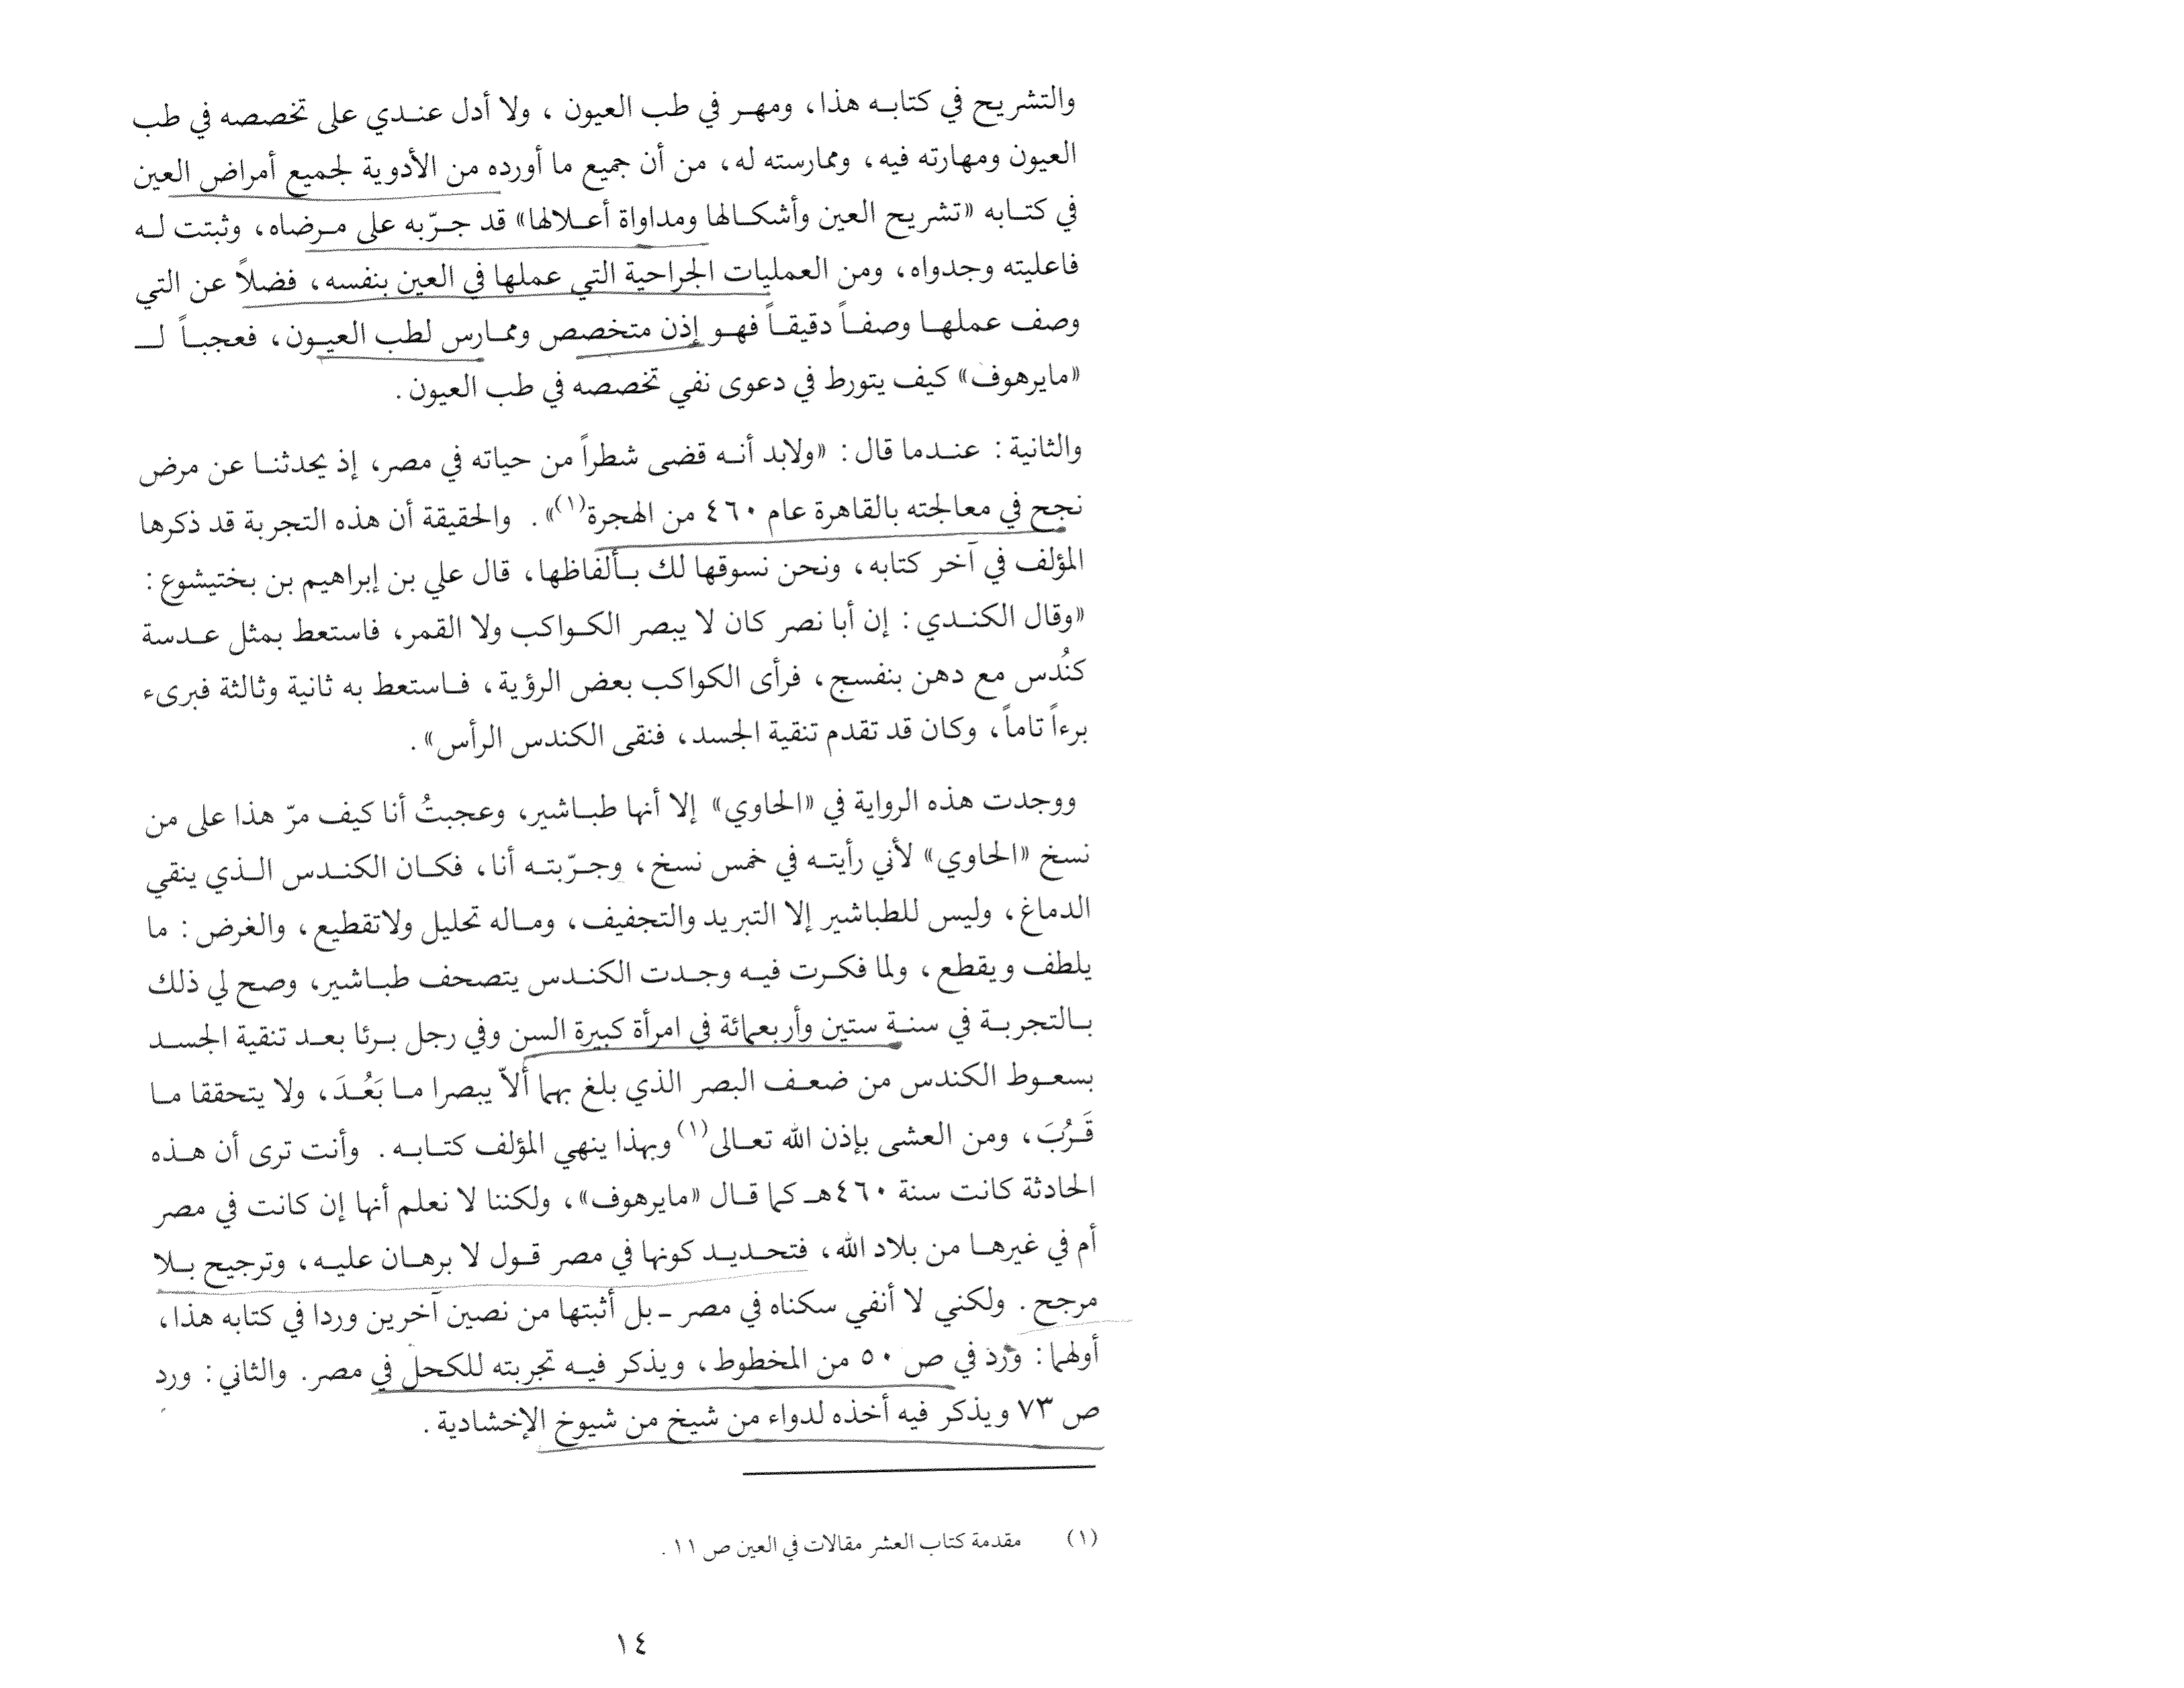 والتشريح في كتابه هذا، ومهر في طب العيون ، ولا أدل عندي على تخصصه في طب
العيون ومهارته فيه، وممارسته له، من أن جميع ما أورده من الأدوية لجميع أمراض العين
في كتابه «تشريح العين وأشكالها ومداواة أعلالها» قد جرّبه على مرضاه، وثبتت له
فاعليته وجدواه، ومن العمليات الجراحية التي عملها في العين بنفسه، فضلاً عن التي
وصف عملها وصفاً دقيقاً فهو إذن متخصص وممارس لطب العيون، فعجباً لـ
«مايرهوف» كيف يتورط في دعوى نفي تخصصه في طب العيون.
والثانية: عندما قال: «ولابد أنه قضى شطراً من حياته في مصر، إذ يحدثنا عن مرض
نجح في معالجته بالقاهرة عام ٤٦٠ من الهجرة(١)». والحقيقة أن هذه التجربة قد ذكرها
المؤلف في آخر كتابه، ونحن نسوقها لك بألفاظها، قال علي بن إبراهيم بن بختيشوع:
«وقال الكندي: إن أبا نصر كان لا يبصر الكواكب ولا القمر، فاستعط بمثل عدسة
كنُدس مع دهن بنفسج، فرأى الكواكب بعض الرؤية، فاستعط به ثانية وثالثة فبرىء
برءاً تاماً، وكان قد تقدم تنقية الجسد، فنقى الكندس الرأس».
ووجدت هذه الرواية في «الحاوي» إلا أنها طباشير، وعجبتُ أنا كيف مرّ هذا على من
نسخ «الحاوي» لأني رأيته في خمس نسخ، وجرّبته أنا، فكان الكندس الذي ينقي
الدماغ، وليس للطباشير إلا التبريد والتجفيف، وماله تحليل ولاتقطيع، والغرض: ما
يلطف ويقطع، ولما فكرت فيه وجدت الكندس يتصحف طباشير، وصح لي ذلك
بالتجربة في سنة ستين وأربعمائة في امرأة كبيرة السن وفي رجل برئا بعد تنقية الجسد
بسعوط الكندس من ضعف البصر الذي بلغ بهما ألاّ يبصرا ما بَعُدَ، ولا يتحققا ما
قَرُبَ، ومن العشى بإذن الله تعالى(١) وبهذا ينهي المؤلف كتابه. وأنت ترى أن هذه
الحادثة كانت سنة ٤٦٠هـ كما قال «مايرهوف»، ولكننا لا نعلم أنها إن كانت في مصر
أم في غيرها من بلاد الله، فتحديد كونها في مصر قول لا برهان عليه، وترجيح بلا
مرجح. ولكني لا أنفي سكناه في مصر ـ بل أثبتها من نصين آخرين وردا في كتابه هذا،
أولهما: ورد في ص ٥٠ من المخطوط، ويذكر فيه تجربته للكحل في مصر. والثاني: ورد
ص ٧٣ ويذكر فيه أخذه لدواء من شيخ من شيوخ الإخشادية.
(١) مقدمة كتاب العشر مقالات في العين ص ١١.
١٤